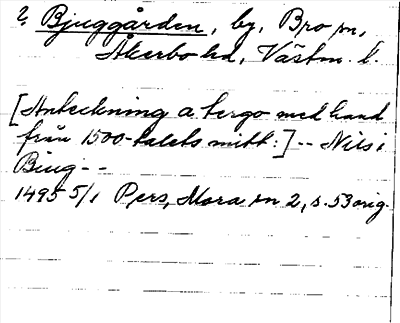 ? Bjuggården, by, Bro sn,
Åkerbo hd, Västm. l.
[Anteckning a tergo med hand
från 1500-talets mitt:] -- Nils i
Biug --
1495 5/1 Pers, Mora sn 2, s. 53 orig.